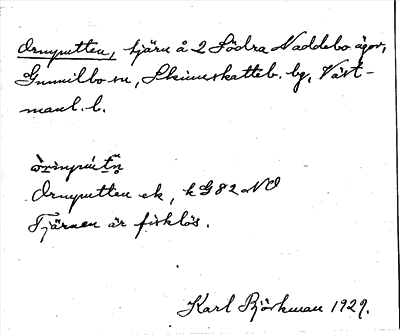 Ormputten, tjärn å 2 Södra Naddebo ägor,
Gunnilbo sn, Skinnskatteb. bg, Väst-
manl. l.
Ormputten ek, k G 82 NO
Tjärnen är fisklös.
Karl Björkman 1929.